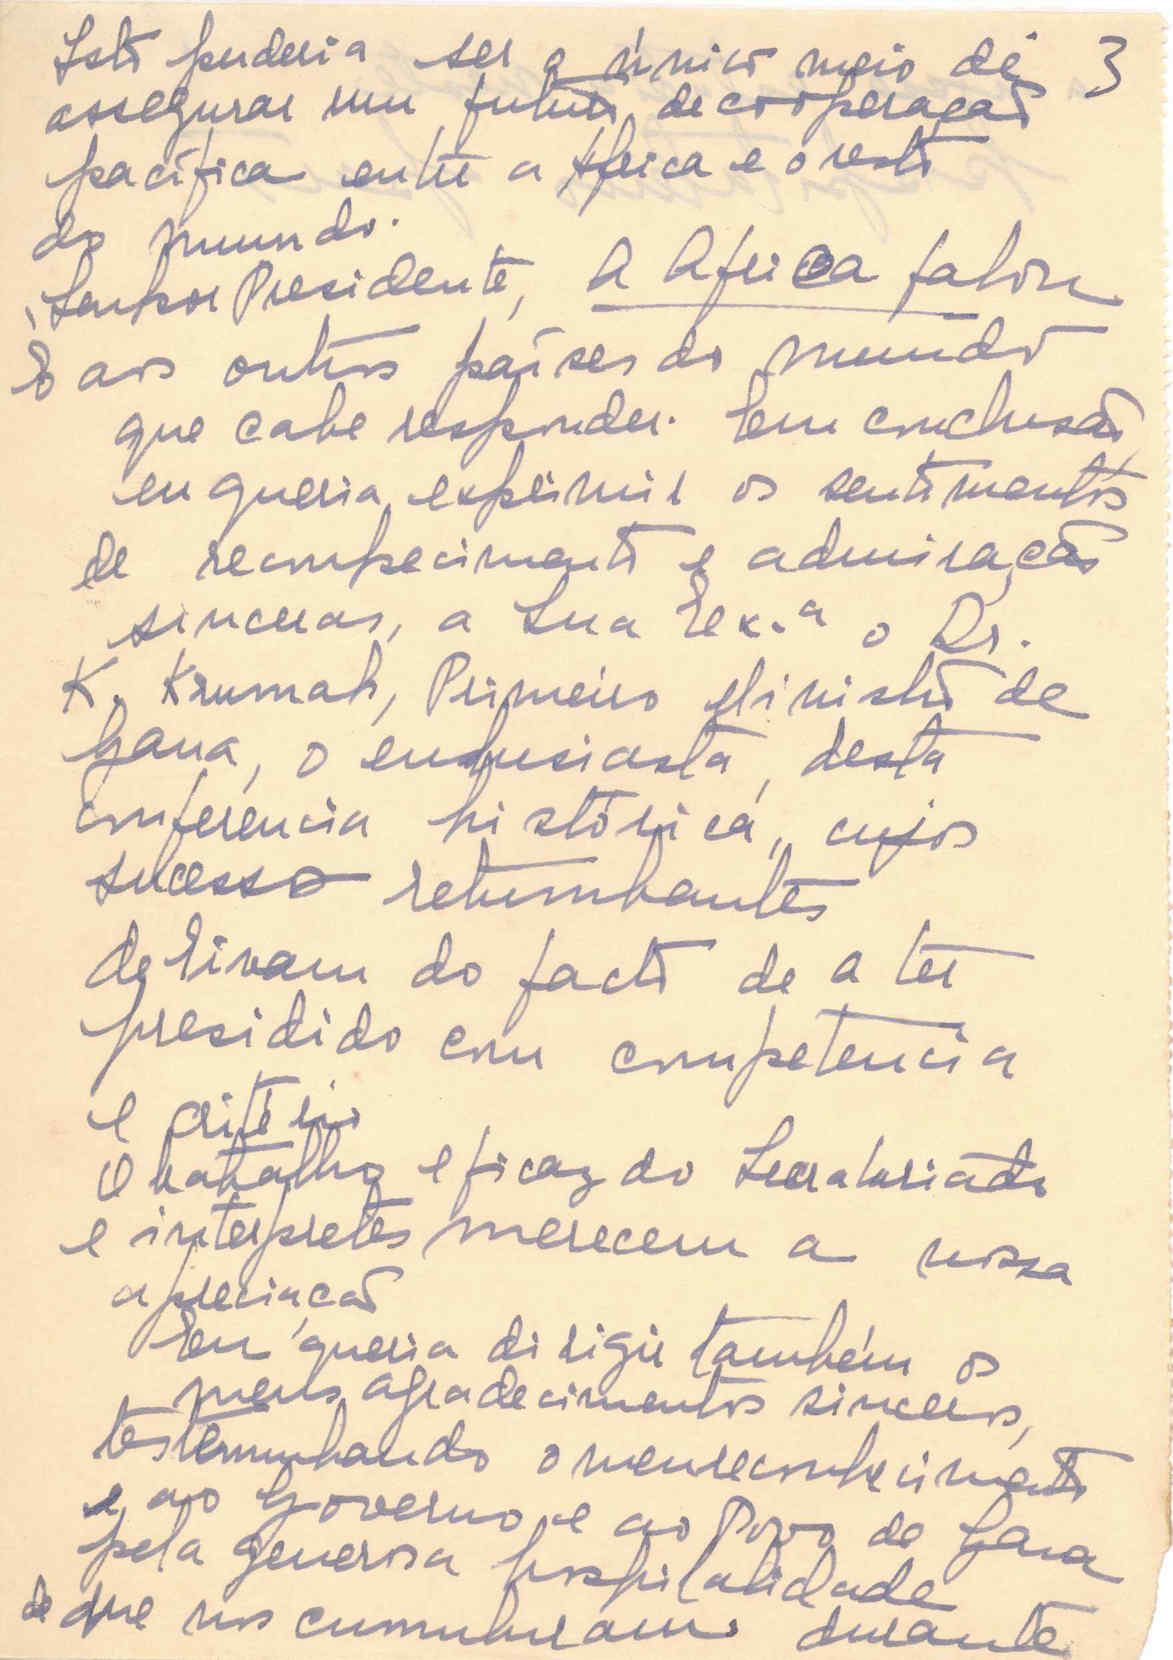 3
Isto poderia ser o único meio de
assegurar um futuro de cooperação
pacífica entre a Africa e o resto
do mundo.
Senhor Presidente, A Africa falou
E aos outros países do mundo
que cabe responder. Em conclusão,
eu queria exprimir os sentimentos
de reconhecimento e admiração
sinceras, a Sua Ex.ª o Dr.
K. Krumah, Primeiro Ministro de
Gana, o enthusiasta, desta
conferência histórica, cujos
sucesso retumbantes
derivam do facto de a ter
presidido com competencia
e critério
O trabalho eficaz do Secratariado
e interpretes merecem a nossa
apreciação
Eu queria dirigir também os
meus agradecimentos sinceros,
testemunhando o meu reconhecimento
e ao Governo e ao Povo de Gana
pela generosa hospitalidade
de que nos cumularam durante